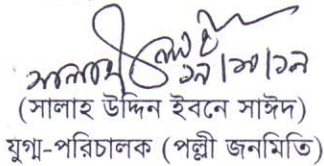 (সালাহ উদ্দিন ইবনে সাঈদ)
যুগ্ম-পরিচালক (পল্লী জনমিতি)